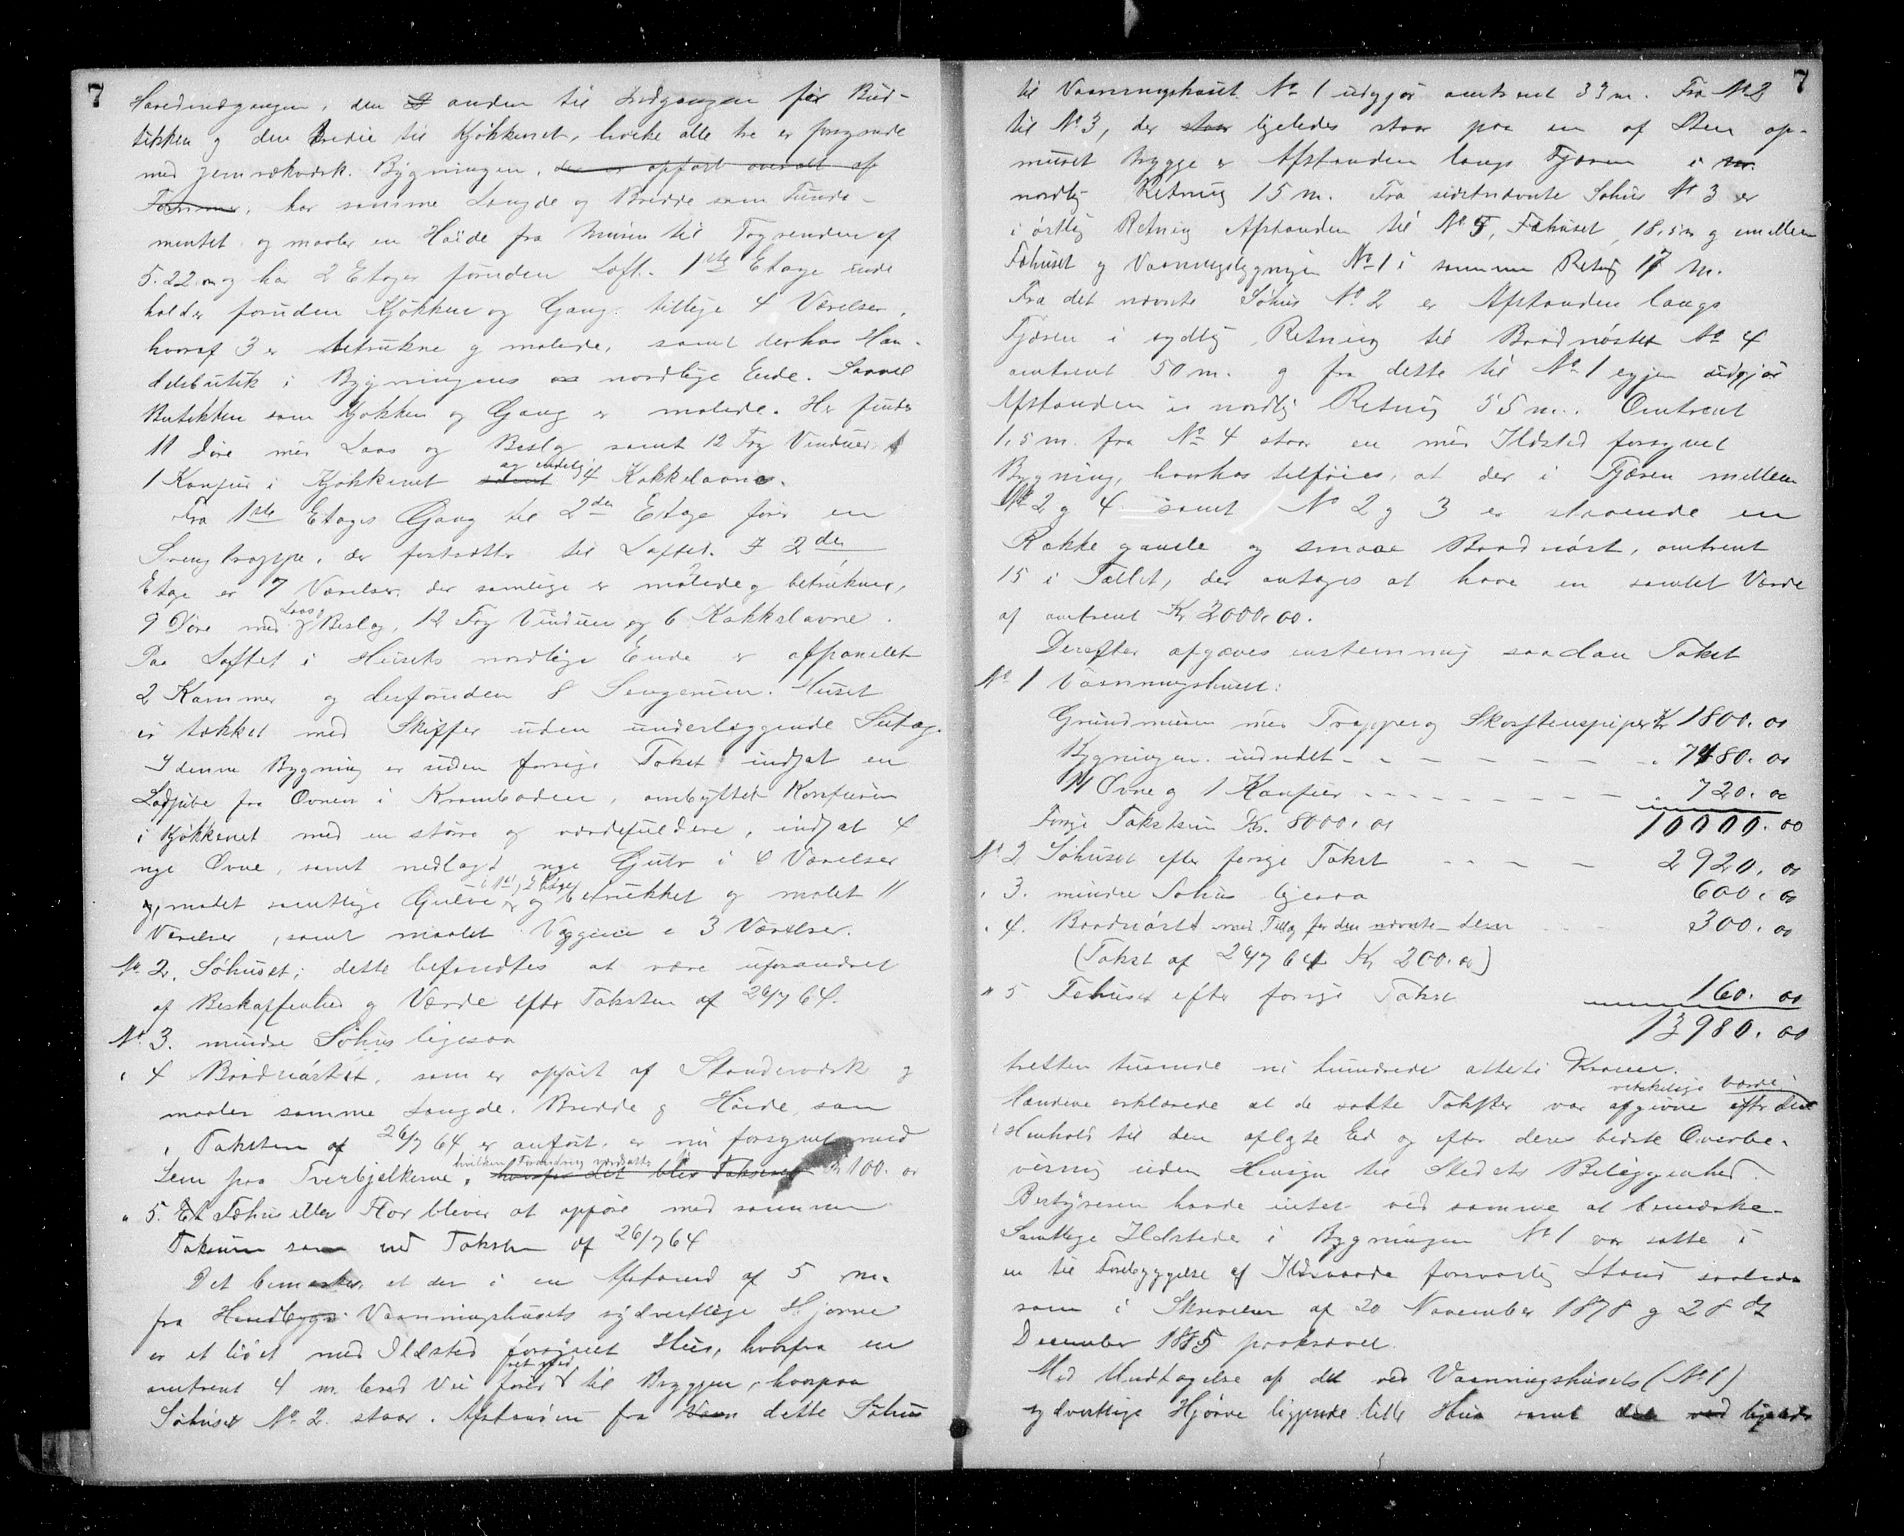 7
Hovedindgangen, den anden til Indgangen for Bud-
tikken og den tredie til Kjøkkenet, hvilke alle tre er forsynede
med Jernrækværk. Bygningen, der er opført overalt af
Tømmer, har samme Længde og Bredde som Funda-
mentet og maaler en Høide fra Muren til Tagrenden af
5.22 m og har 2 Etager foruden Loft. 1ste Etage inde
holder foruden Kjøkken og Gang tillige 4 Værelser,
hvoraf 3 er betrukne og malede, samt derhos Han-
delsbutik i Bygningens nordlige Ende. Saavel
Butikken som Kjøkken og Gang er malede. Her findes
11 Døre med Laas og Beslag samt 12 Fag Vinduer,
1 Komfur i Kjøkkenet samt og endelig 4 Kakkelovne.
Fra 1ste Etages Gang til 2den Etage fører en
Svingtrappe, der fortsætter til Loftet. I 2den
Etage er 7 Værelser, der samtlige er malede og betrukne,
9 Døre med Laas og Beslag, 12 Fag Vinduer og 6 Kakkelovne.
Paa Loftet i Husets nordlige Ende er afpanelet
2 Kammer og desforuden 8 Sengerum. Huset
er tækket med Skiffer uden underlæggende Sutag.
I denne Bygning er siden forrige Takst indsat en
Ladpibe fra Ovnen i Kramboden, ombyttet Komfuren
i Kjøkkenet med en større og værdifuldere, indsat 4
nye Ovne, samt nedlagt nye Gulv i 4 Værelser
og malet samtlige Gulve i 1ste, 2 Etage og betrukket og malet 11
Værelser, samt maalet Væggene i 3 Værelser.
No 2. Søhuset; dette befandtes at være uforandret
af Beskaffenhed og Værdi efter Taksten af 26/7 64.
No 3. mindre Søhus ligesaa
" 4 Baadnøstet, som er opført af Standerværk og
maaler samme Længde, Bredde og Høide som
i Taksten af 26/7 64 er anført, er nu forsynet med
Lem paa Tverbjelkerne, hvilken Forandring værdsattes hvorfor det blev Taksert Kr 100. 00
" 5. Et Fæhus eller Flor bliver at opføre med samme
Taksum som ved Taksten af 26/7 64
Det bemærkes, at der i en Afstand af 5 m.
fra Hovedbygn Vaaningshusets sydvestlige Hjørne
er et lidet med Ildsted forsynet Hus, hvorfra en
omtrent 4 m. bred Vei fører til Bryggen, hvorpaa
Søhuset No 2. staar. Afstanden fra Vaan dette Søhus
7
til Vaaningshuset No 1 udgjør omtrent 33 m. Fra No 2
til No 3, der staar ligeledes staar paa en af Sten op-
muret Brygge er Afstanden langs Fjæren i
nordlig Retning 15 m. Fra sidstnævnte Søhus No 3 er
i østlig Retning Afstanden til No 5, Fæhuset, 18,5 m og imellem
Fæhuset og Vaaningsbygningen No 1 i samme Retning 17 m.
Fra det nævnte Søhus No 2 er Afstanden langs
Fjæren i sydlig Retning til Baadnøstet No 4
omtrent 50 m. og fra dette til No 1 igjen udgjør
Afstanden i nordlig Retning 55 m. Omtrent
1,5 m. fra No 4 staar en med Ildsted forsynet
Bygning, hvorhos tilføies, at der i Fjæren mellem
No 2 og 4 samt No 2 og 3 er staaende en
Række gamle og smaae Baadnøst, omtrent
15 i Tallet, der antages at have en samlet Værdi
af omtrent Kr 2000.00.
Derefter afgaves enstemmig saadan Takst
No 1 Vaaningshuset:
Grundmuren med Trapper og Skorstenspiper Kr 1800. 00
Bygningen indredet - - - - - - - 7480. 00
11 Ovne og 1 Komfur - - - - - - - 720. 00
Forrige Takstsum Kr. 8000. 00 10000. 00
No 2 Søhuset efter forrige Takst - - - - 2920. 00
" 3. mindre Søhus ligesaa 600. 00
" 4. Baadnøstet med Tillæg for den nævnte Lem 300. 00
(Takst af 26/7 64 Kr 200.00)
" 5 Fæhuset efter forrige Takst 160. 00
13980. 00
tretten tusinde ni hundrede otteti Kroner.
virkelige Værdi
Mændene erklærede at de satte Takster var afgivne efter den
i Henhold til den aflagte Ed og efter deres bedste Overbe-
visning uden Hensyn til Stedets Beliggenhed.
Bestyreren havde intet ved samme at bemærke.
Samtlige Ildstede i Bygningen No 1 var satte i
en til Forebyggelse af Ildsvaade forsvarlig Stand saaledes
som i Skrivelser af 20 November 1878 og 28 de
December 1885 paakrævet.
Med Undtagelse af det ved Vaaningshusets (No 1)
sydvestlige Hjørne liggende lille Hus samt det ved ligeledes